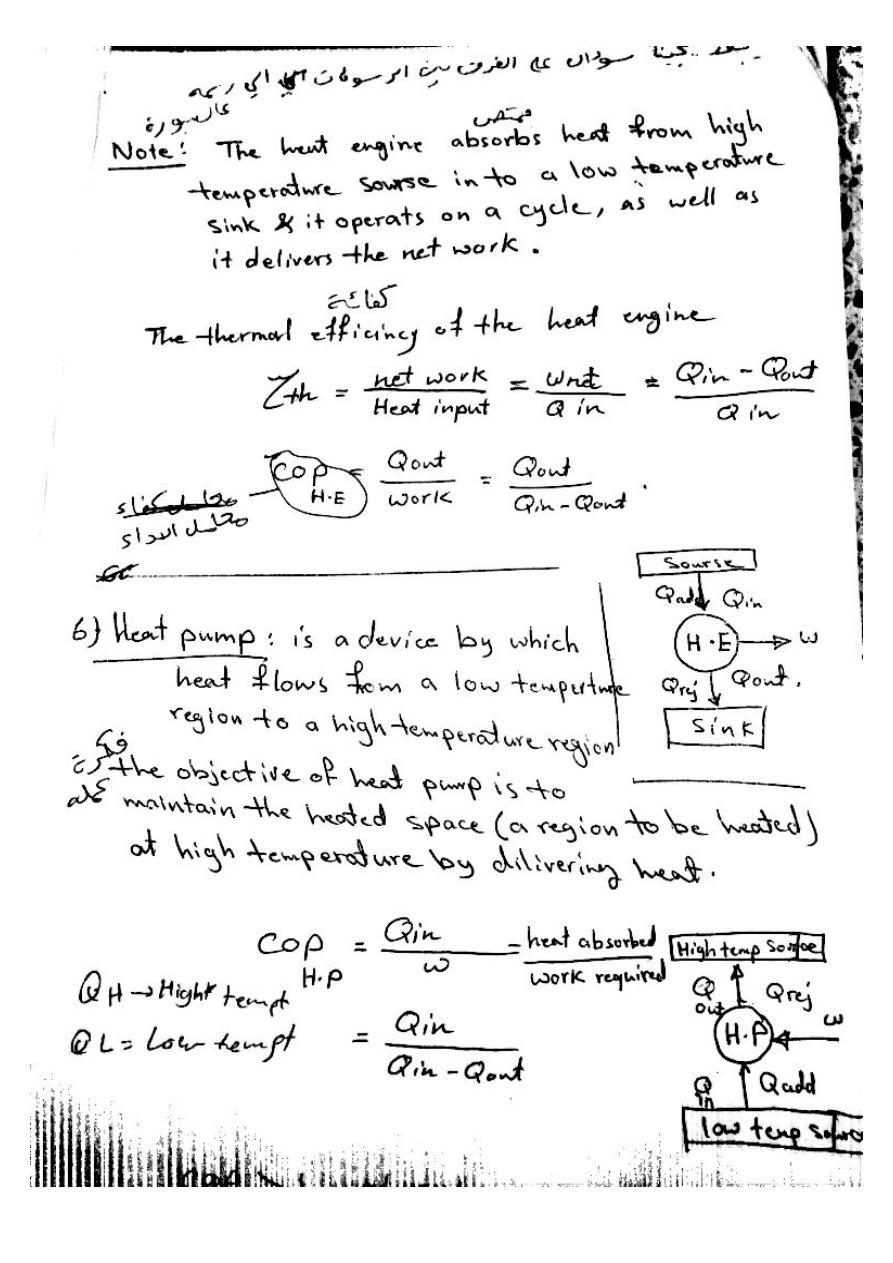 سؤال على الفرق بين الرسومات الي
عالسبورة
ممتص
Note: The heat engine absorbs heat from high
temperature sourse in to a low temperature
sink & it operats on a cycle, as well as
it delivers the net work.
كفائة
The thermal efficincy of the heat engine
Zth = net work / Heat input = wnet / Q in = Qin - Qout / Q in
COP H.E = Qout / work = Qout / Qin - Qout .
معامل كفاء
معامل الاداء
Sourse
Qadd Qin
H.E w
Qrej Qout.
Sink
6) Heat pump: is a device by which
heat flows from a low tempertture
region to a high temperature region
فكرة
عمله
the objective of heat pump is to
maintain the heated space (a region to be heated)
at high temperature by dilivering heat.
COP H.P = Qin / w = heat absorbed / work required
QH → Hight tempt
QL = Low tempt
= Qin / Qin - Qout
High temp Source
Q out Qrej
H.P w
Q in Qadd
low temp source